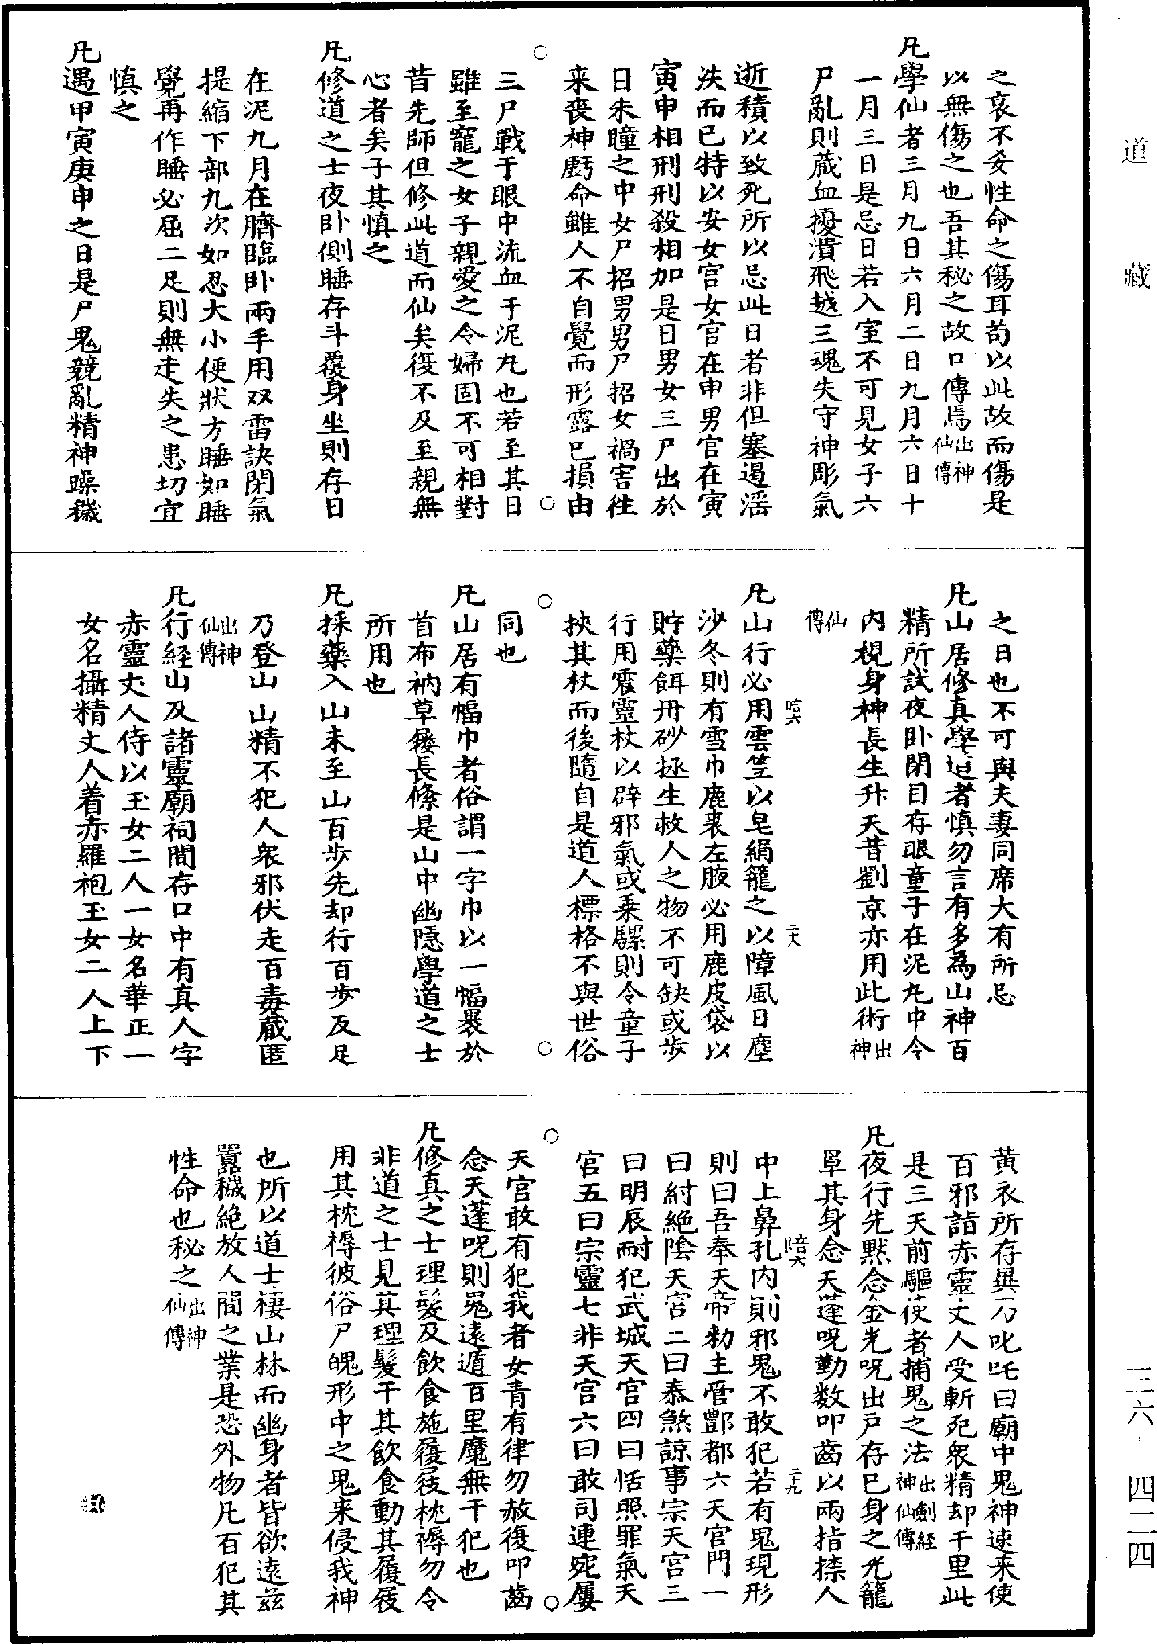 道藏
三六·四二四
之哀不妥性命之傷耳苟以此故而傷是
以無傷之也吾其秘之故口傳焉出神仙傳
凡學仙者三月九日六月二日九月六日十
一月三日是忌日若入室不可見女子六
尸亂則藏血擾潰飛越三魂失守神彫氣
逝積以致死所以忌此日者非但塞遏淫
泆而已特以安女宫女宫在申男宫在寅
寅申相刑刑殺相加是日男女三尸出於
日朱瞳之中女尸招男男尸招女禍害徃
来喪神虧命雖人不自覺而形露已損由
三尸戰于眼中流血于泥丸也若至其日
雖至寵之女子親愛之令婦固不可相對
昔先師但修此道而仙矣復不及至親無
心者矣子其慎之
凡修道之士夜卧側睡存斗覆身坐則存日
在泥九月在臍臨卧兩手用双雷訣閉氣
提縮下部九次如忍大小便狀方睡如睡
覺再作睡必屈二足則無走失之患切宜
慎之
凡遇甲寅庚申之日是尸鬼競亂精神躁穢
之日也不可與夫妻同席大有所忌
凡山居修真學道者慎勿言有多為山神百
精所試夜卧閉目存眼童子在泥丸中令
内視身神長生升天昔劉京亦用此術出神
仙傳
凡山行必用雲笠以皂絹籠之以障風日塵
沙冬則有雪巾鹿裘左腋必用鹿皮袋以
貯藥餌丹砂拯生救人之物不可缺或歩
行用靈杖以辟邪氣或乗騾則令童子
挾其杖而後隨自是道人標格不與世俗
同也
凡山居有幅巾者俗謂一字巾以一幅裹於
首布衲草屦長絛是山中幽隱學道之士
所用也
凡採藥入山未至山百歩先却行百歩反足
乃登山山精不犯人衆邪伏走百毒藏匿
出神仙傳
凡行經山及諸靈廟祠間存口中有真人字
赤靈丈人侍以玉女二人一女名華正一
女名攝精丈人着赤羅袍玉女二人上下
黄衣所存畢乃叱咤曰廟中鬼神速来使
百邪詣赤靈丈人受斬死衆精却千里此
是三天前驅使者捕鬼之法出劍經神仙傳
凡夜行先黙念金光呪出戸存已身之光籠
單其身念天蓬呪勤数叩齒以兩指捺人
中上鼻孔内則邪鬼不敢犯若有鬼現形
則曰吾奉天帝勑主管酆都六天宫門一
曰紂絶隂天宫二曰泰煞諒事宗天宫三
曰明辰耐犯武城天宫四曰恬照罪氣天
宫五曰宗靈七非天宫六曰敢司連宛屢
天宫敢有犯我者女青有律勿赦復叩齒
念天蓬呪則鬼遠遁百里魔無干犯也
凡修真之士理髮及飲食施履屐枕褥勿令
非道之士見其理髮干其飲食動其履屐
用其枕褥彼俗尸魄形中之鬼来侵我神
也所以道士棲山林而幽身者皆欲遠玆
囂穢絶放人間之業是恐外物凡百犯其
性命也秘之出神仙傳